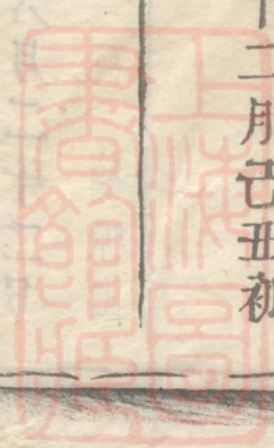 二月己丑初
上海圖
書館藏